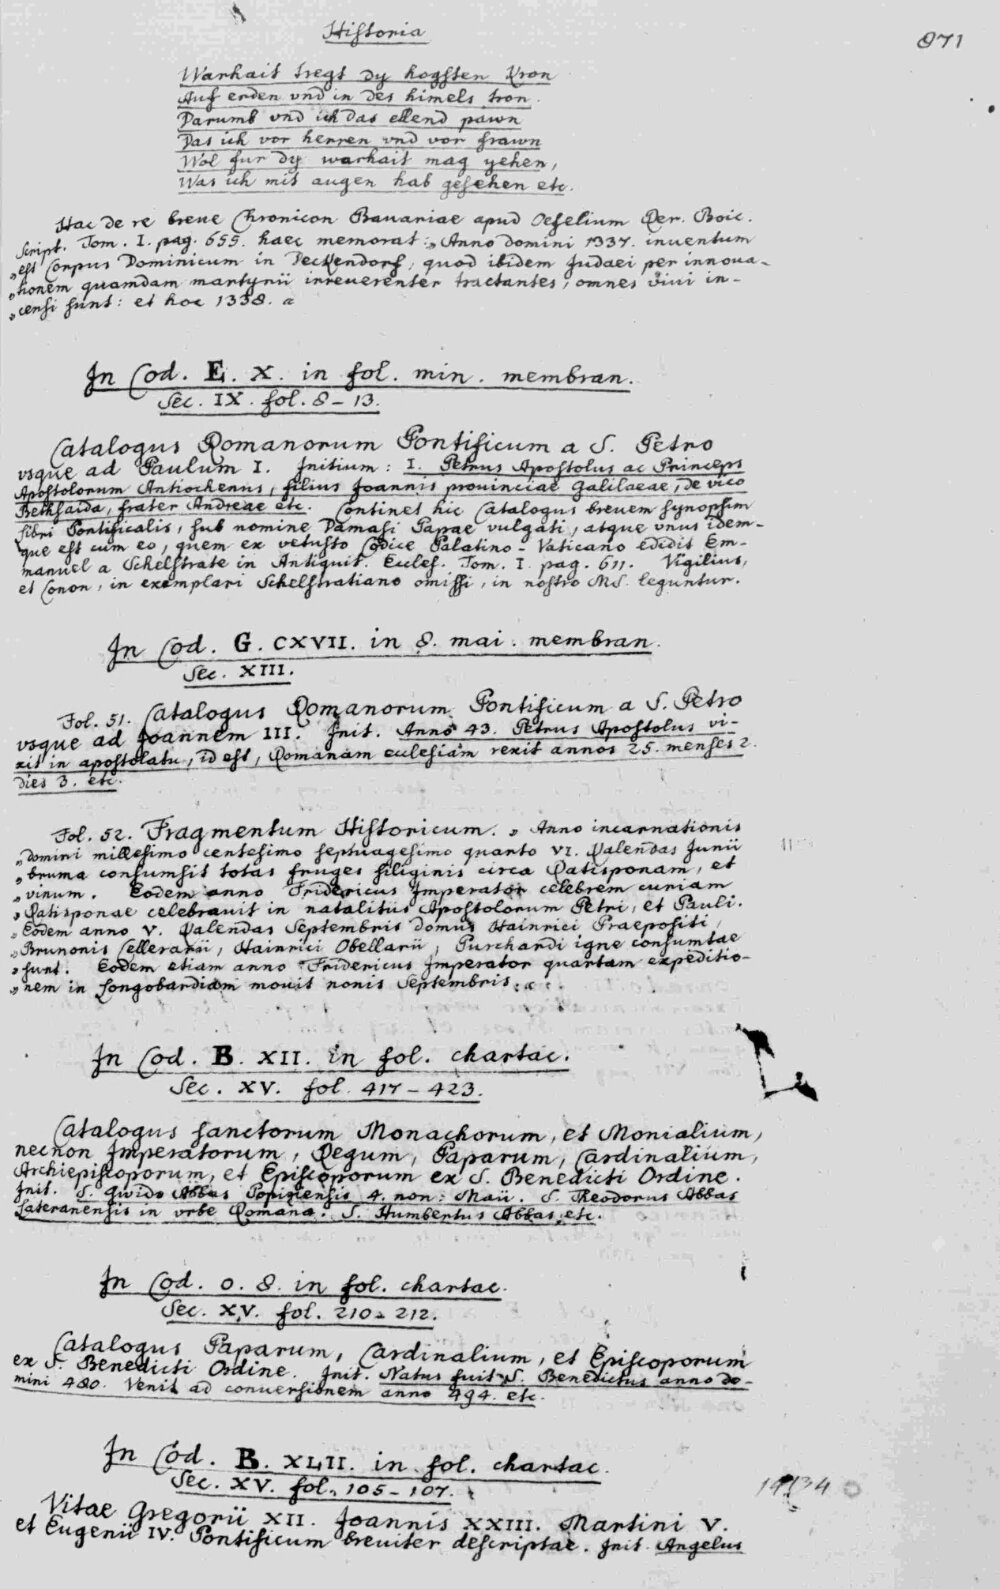 Historia
871
Warhait tregt dy hogsten Kron
Auf erden vnd in des himels tron.
Darumb vnd ich das ellend pawn
Das ich vor herren vnd vor frawn
Wol fur dy warhait mag yehen,
Was ich mit augen hab gesehen etc.
Hac de re breue Chronicon Bauariae apud Oefelium Rer. Boic.
Script. Tom. I. pag. 655. haec memorat: „Anno domini 1337. inuentum
„est Corpus Dominicum in Deckendorf, quod ibidem Judaei per innoua-
„tionem quamdam martyrii irreuerenter tractantes, omnes viui in-
„censi sunt: et hoc 1338. “
In Cod. E. X. in fol. min. membran.
Sec. IX. fol. 8-13.
Catalogus Romanorum Pontificum a S. Petro
vsque ad Paulum I. Initium: I. Petrus Apostolus ac Princeps
Apostolorum Antiochenus, filius Joannis prouinciae Galilaeae, de vico
Bethsaida, frater Andreae etc. Continet hic Catalogus breuem synopsim
libri Pontificalis, sub nomine Damasi Papae vulgati, atque vnus idem-
que est cum eo, quem ex vetusto Codice Palatino-Vaticano edidit Em-
manuel a Schelstrate in Antiquit. Eccles. Tom. I. pag. 611. Vigilius,
et Conon, in exemplari Schelstratiano omissi, in nostro MS. leguntur.
In Cod. G. CXVII. in 8. mai. membran.
Sec. XIII.
Fol. 51. Catalogus Romanorum Pontificum a S. Petro
vsque ad Joannem III. Init. Anno 43. Petrus Apostolus vi-
xit in apostolatu, id est, Romanam ecclesiam rexit annos 25. menses 2.
dies 3. etc.
Fol. 52. Fragmentum Historicum. „Anno incarnationis
„domini millesimo centesimo septuagesimo quarto VI. Kalendas Junii
„bruma consumsit totas fruges siliginis circa Ratisponam, et
„vinum. Eodem anno Fridericus Imperator celebrem curiam
„Ratisponae celebrauit in natalitiis Apostolorum Petri, et Pauli.
„Eodem anno V. Kalendas Septembris domus Hainrici Praepositi,
„Brunonis Cellerarii, Hainrici Obellarii, Purchardi igne consumtae
„sunt. Eodem etiam anno Fridericus Imperator quartam expeditio-
„nem in Longobardiam mouit nonis Septembris. “
In Cod. B. XII. in fol. chartac.
Sec. XV. fol. 417-423.
Catalogus sanctorum Monachorum, et Monialium,
necnon Imperatorum, Regum, Paparum, Cardinalium,
Archiepiscoporum, et Episcoporum ex S. Benedicti Ordine.
Init. S. Gwido Abbas 4. non. Maii. S. Theodorus Abbas
Lateranensis in vrbe Romana. S. Humbertus Abbas etc.
In Cod. O. 8. in fol. chartac.
Sec. XV. fol. 210-212.
Catalogus Paparum, Cardinalium, et Episcoporum
ex S. Benedicti Ordine. Init. Natus fuit S. Benedictus anno do-
mini 480. Venit ad conuersionem anno 494. etc.
In Cod. B. XLII. in fol. chartac.
Sec. XV. fol. 105-107.
Vitae Gregorii XII. Joannis XXIII. Martini V.
et Eugenii IV. Pontificum breuiter descriptae. Init. Angelus